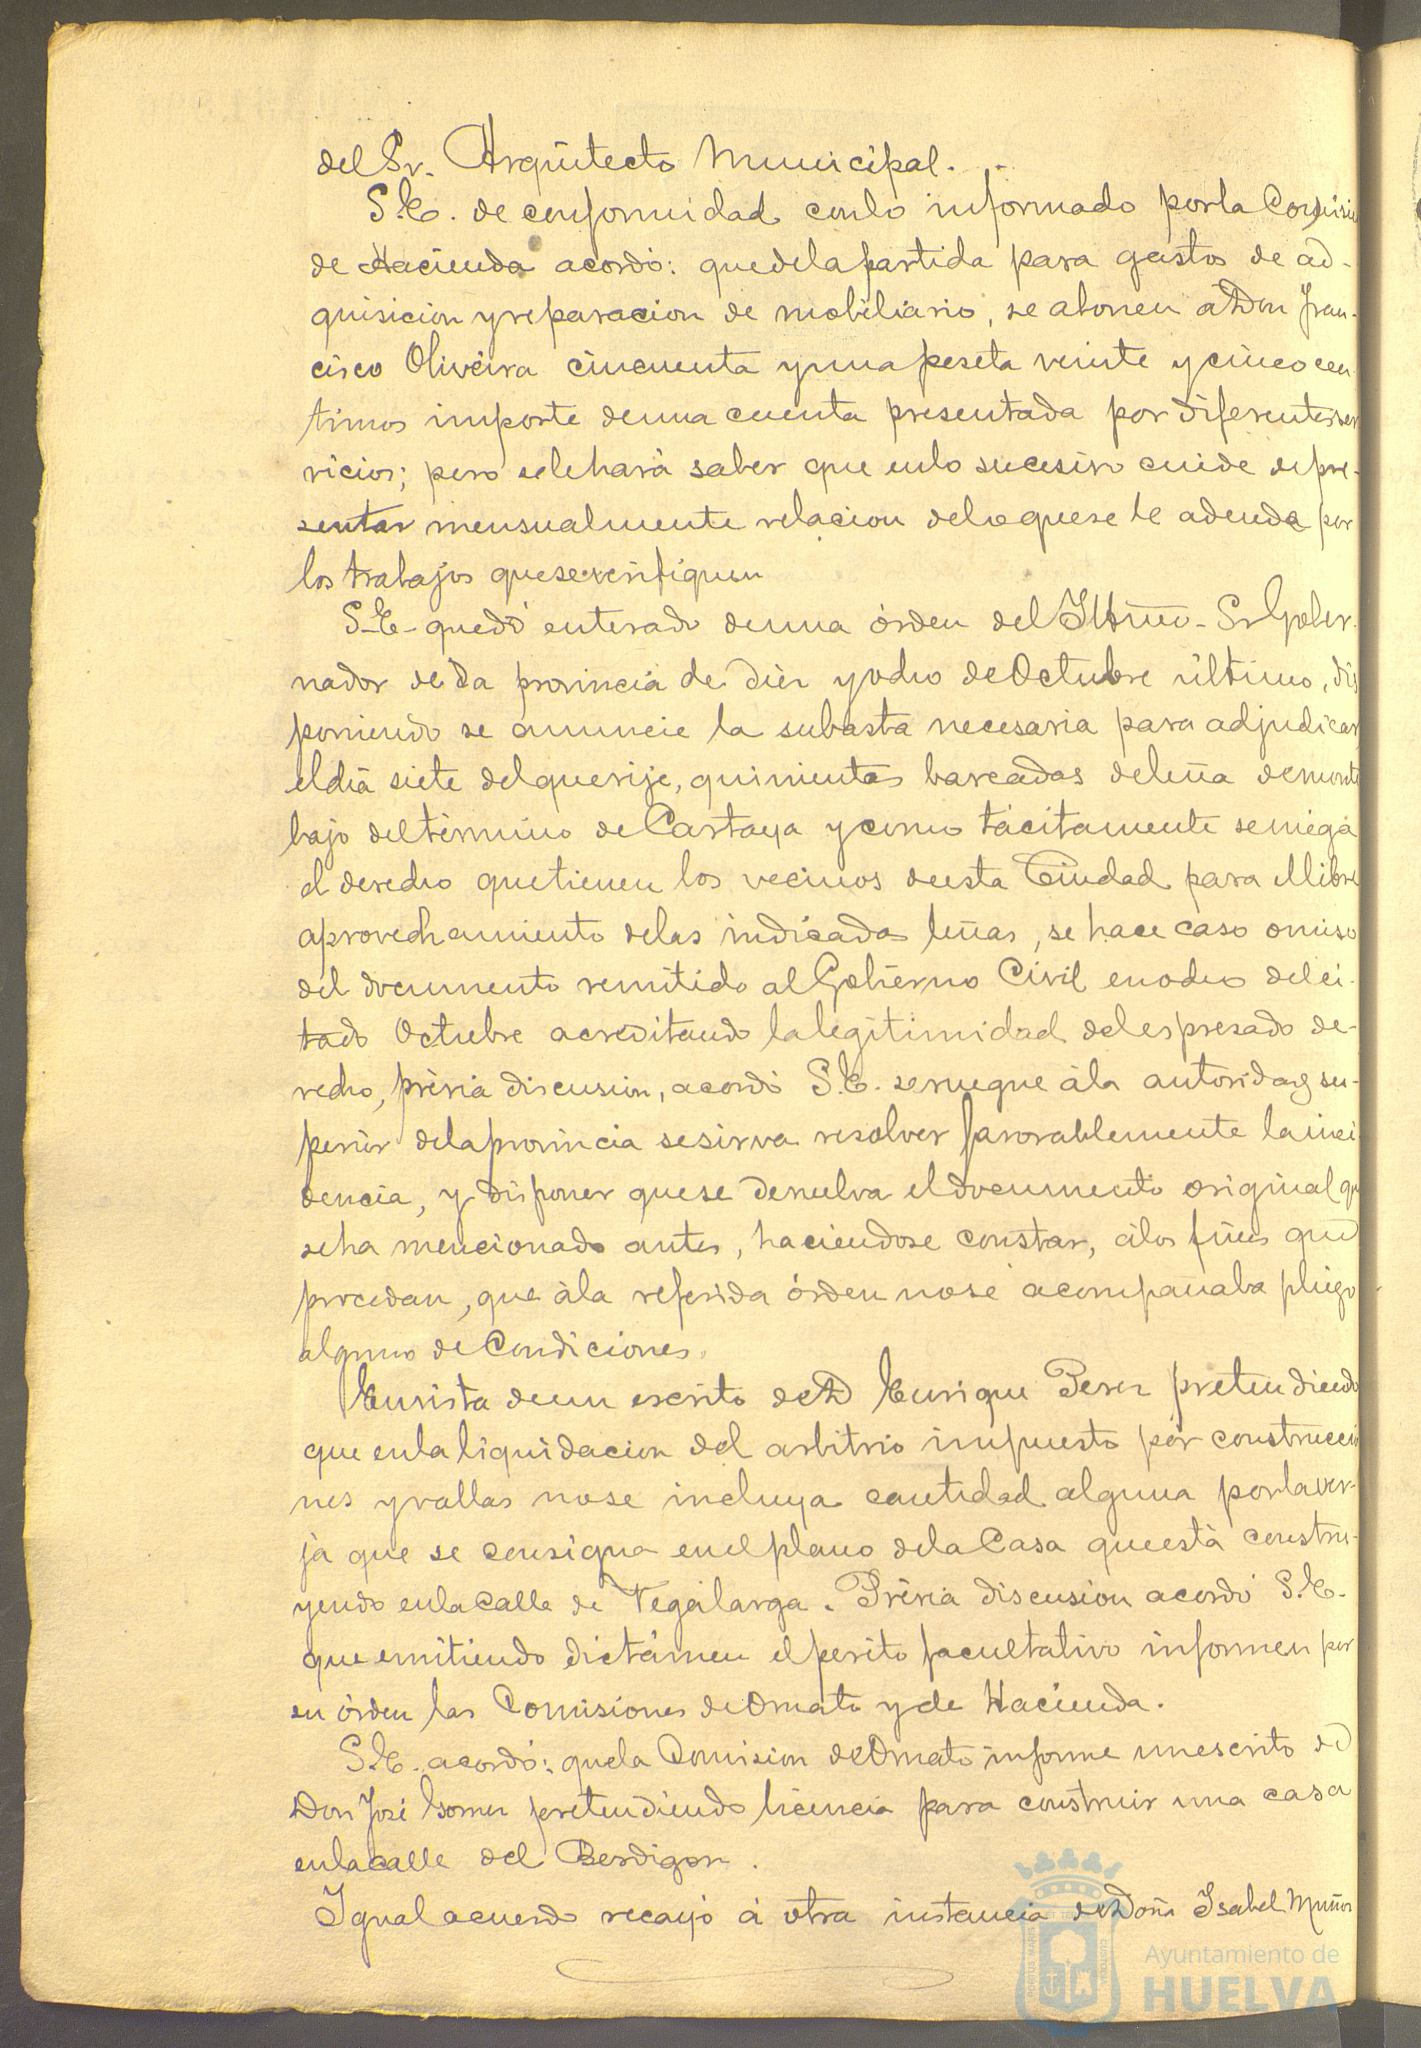 del Sr. Arquitecto Municipal.
S.E. de conformidad con lo informado por la Comisión
de Hacienda acordó: que de la partida para gastos de ad-
quisicion y reparacion de mobiliario, se abonen á Don Fran-
cisco Oliveira cincuenta y una peseta veinte y cinco cen
timos importe de una cuenta presentada por diferentes ser
vicios; pero se le hará saber que en lo sucesivo cuide de pre-
sentar mensualmente relacion de lo que se le adeuda por
los trabajos que se verifiquen
S.E. quedó enterado de una órden del Iltmo. Sr Gober-
nador de la provincia de diez y ocho de Octubre último, dis
poniendo se anuncie la subasta necesaria para adjudicar
el dia siete del que rije, quinientas barcadas de leña de monte
bajo del término de Cartaya y como tácitamente se niega
el derecho que tienen los vecinos de esta Ciudad para el libre
aprovechamiento de las indicadas leñas, se hace caso omiso
del documento remitido al Gobierno Civil en ocho del ci-
tado Octubre acreditando la legitimidad del espresado de-
recho, prévia discusion, acordó S.E. se ruegue á la autoridad su-
perior de la provincia se sirva resolver favorablemente la inci
dencia, y disponer que se devuelva el documento original que
se ha mencionado antes, haciendose constar, á los fines que
procedan, que á la referida órden no se acompañaba pliego
alguno de Condiciones.
En vista de un escrito de D Enrique Perez pretendiendo
que en la liquidacion del arbitrio impuesto por construccio
nes y vallas no se incluya cantidad alguna por la ver-
ja que se consigna en el plano de la Casa que está constru-
yendo en la calle de Vega larga. Prévia discusion acordó S.E.
que emitiendo dictámen el perito facultativo informen por
su órden las Comisiones de Ornato y de Hacienda.
S.E. acordó: que la Comision de Ornato informe un escrito de
Don José Gomez pretendiendo licencia para construir una casa
en la calle del Berdigon.
Igual acuerdo recayó á otra instancia de Doña Isabel Muñoz
Ayuntamiento de
HUELVA